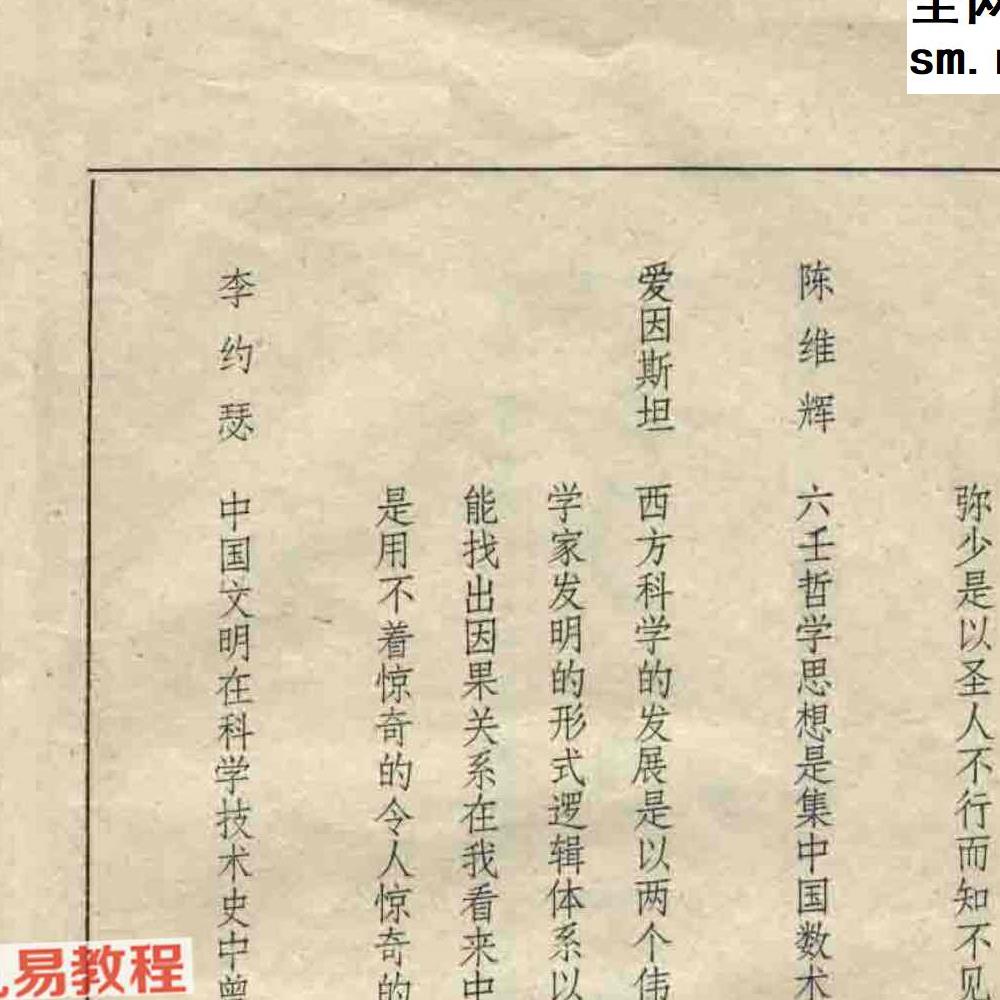 弥少是以圣人不行而知不见
陈维辉 六壬哲学思想是集中国数术
爱因斯坦 西方科学的发展是以两个伟
学家发明的形式逻辑体系以
能找出因果关系在我看来中
是用不着惊奇的令人惊奇的
李约瑟 中国文明在科学技术史中曾
sm.
易教程